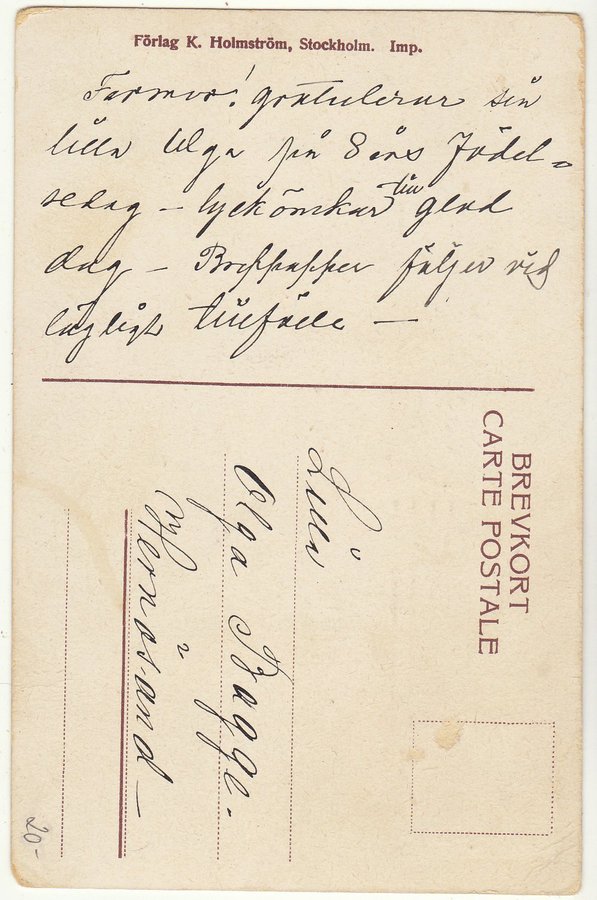 Förlag K. Holmström, Stockholm. Imp.
Farmor! gratulerar sin
lilla Olga på 8 års Födel=
sedag – lyckönskar till glad
dag – följer vid
lägligt tillfälle —
BREVKORT
CARTE POSTALE
Lilla
Olga Bagge.
Hernösand –
20-